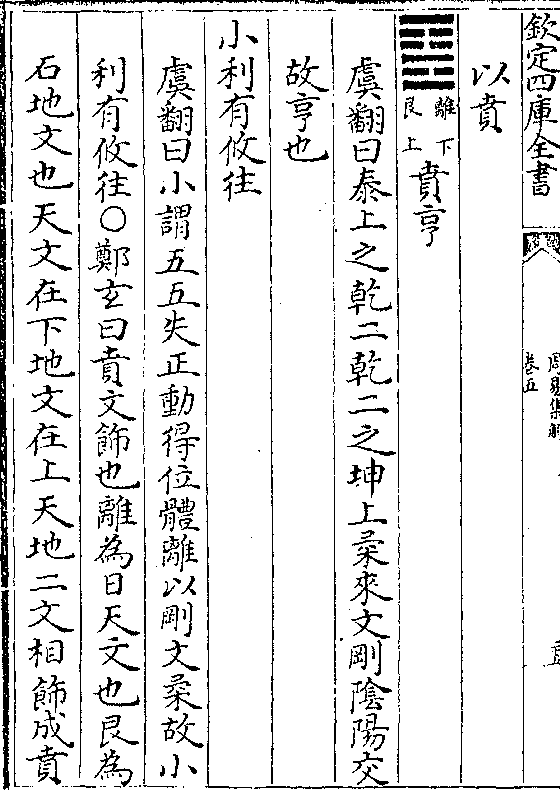 欽定四庫全書
周易集解
卷五
以賁
離下
艮上
賁亨
虞翻曰泰上之乾二乾二之坤上柔來文剛陰陽交
故亨也
小利有攸往
虞翻曰小謂五五失正動得位體離以剛文柔故小
利有攸往〇鄭玄曰賁文飾也離為日天文也艮為
石地文也天文在下地文在上天地二文相飾成賁